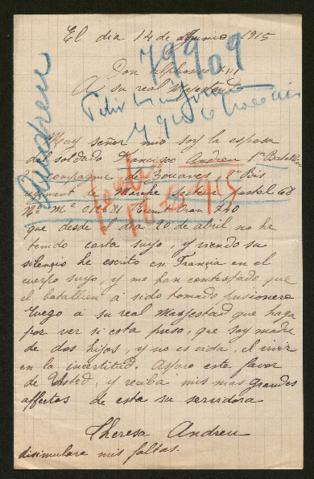 El dia 14 de Junio 1915
79909
Don Alphonso XIII
A su real Majestad
Andreu
Muy señor mio soy la esposa
del soldado Francisco Andreu 1º Batallon
compagnie de Zouaves Bis
regiment de Marche secteur postal 68
que desde el dia 20 de abril no ha
tenido carta suya, y viendo su
silencio he escrito en Francia en el
cuerpo suyo, y me han contestado que
el batallon á sido tomado prisionero
ruego á su real Majestad que haga
por ver si esta preso, que soy madre
de dos hijos, y no es vida, el vivir
en la incertitud. Espero este favor
de Usted, y reciba mis mas grandes
affectos de esta su servidora
Theresa Andreu
disimulara mis faltas.